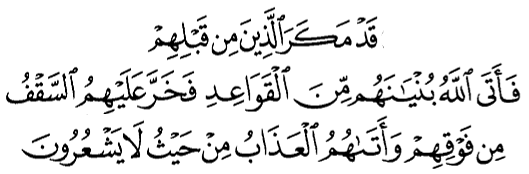 قَدْ مَكَرَ ٱلَّذِينَ مِن قَبْلِهِمْ
فَأَتَى ٱللَّهُ بُنْيَٰنَهُم مِّنَ ٱلْقَوَاعِدِ فَخَرَّ عَلَيْهِمُ ٱلسَّقْفُ
مِن فَوْقِهِمْ وَأَتَىٰهُمُ ٱلْعَذَابُ مِنْ حَيْثُ لَا يَشْعُرُونَ